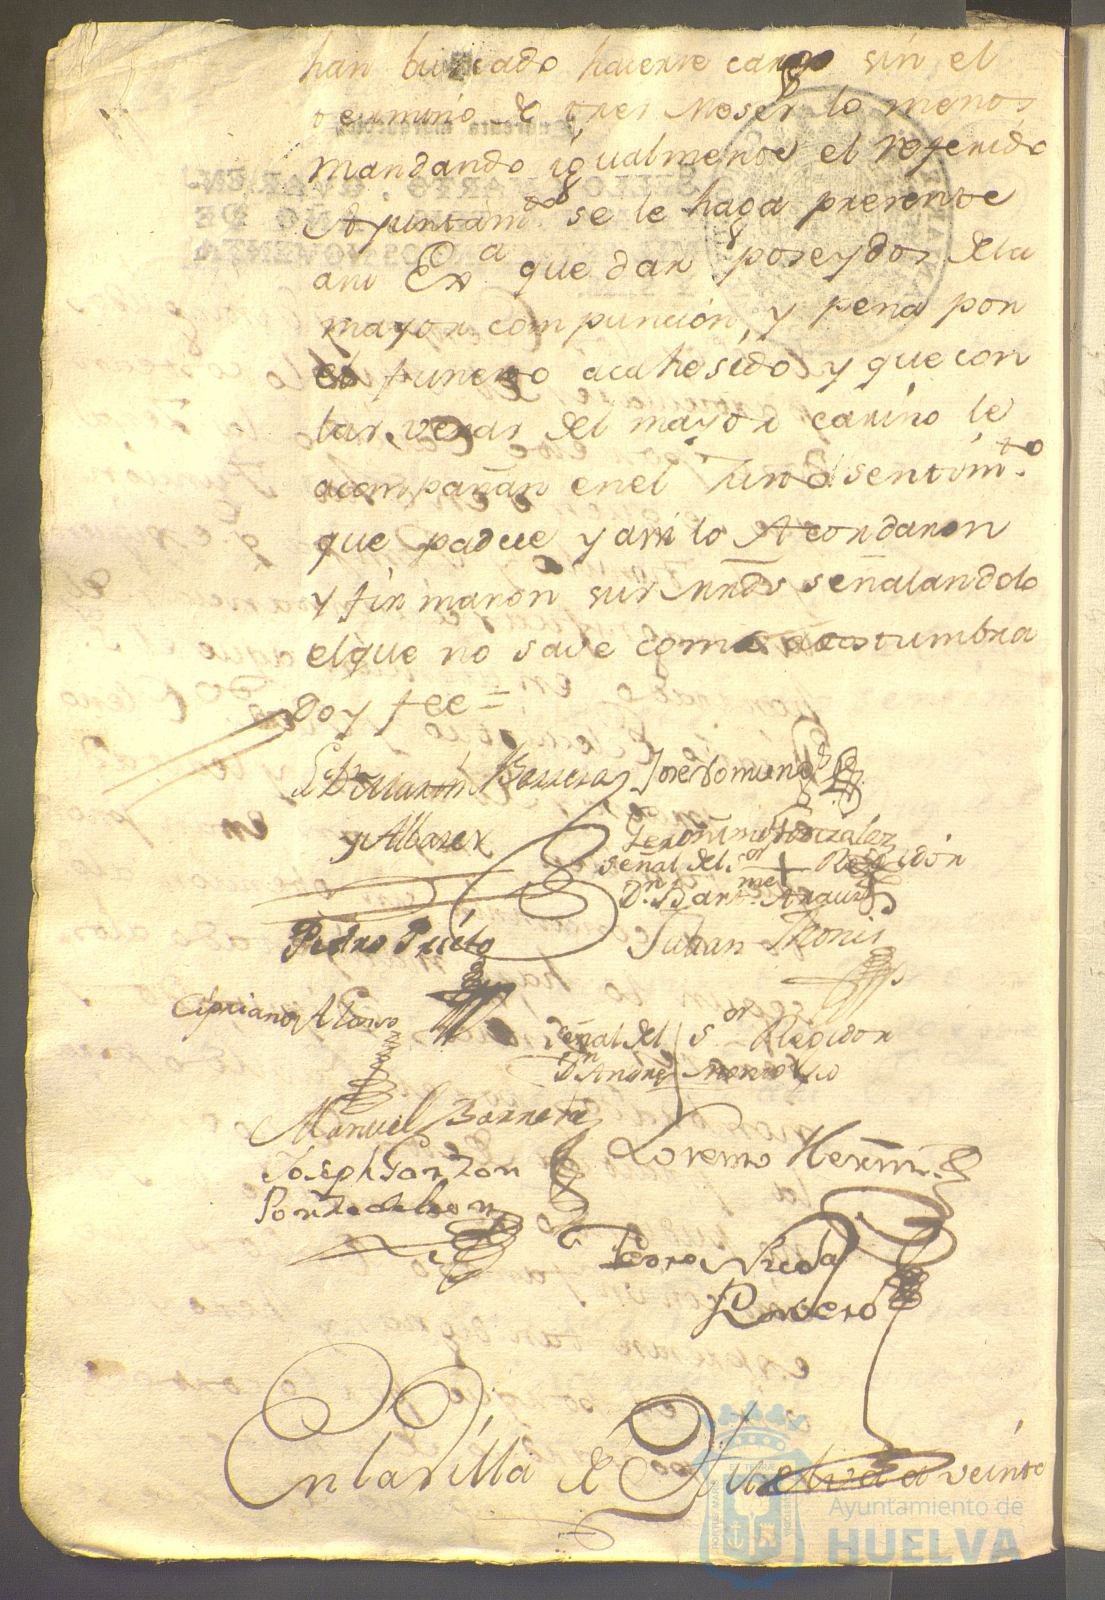 han buscado hacerse cargo sin el
termino de tres Meses lo menos
mandando igualmente el referido
Ayuntamto se le haga presente
asu Exa que dan poseydos dela
mayor compuncion, y pena por
el funesto acahesido y que con
las veras del mayor cariño le
acompañan enel Jundo sentimto
que padece y assi lo Acordaron
y firmaron sus mrds señalandolo
elque no save como acostumbra
Doy fee =
Ldo Martin Barrera Jose Domingo
y Albarez
Jeronimo Gonzalez
Señal del Sor + Regidor
Dn Barme Arauz
Pedro Prieto Juan Monis
Cipriano Alonso
Señal del Sor Regidor
Dn Andres
Manuel Barrera
Lorenzo Hernz
Joseph Garzon
Ponze de leon
Pedro Rueda
Romero
En la Villa de Huelva a veinte
Ayuntamiento de
HUELVA